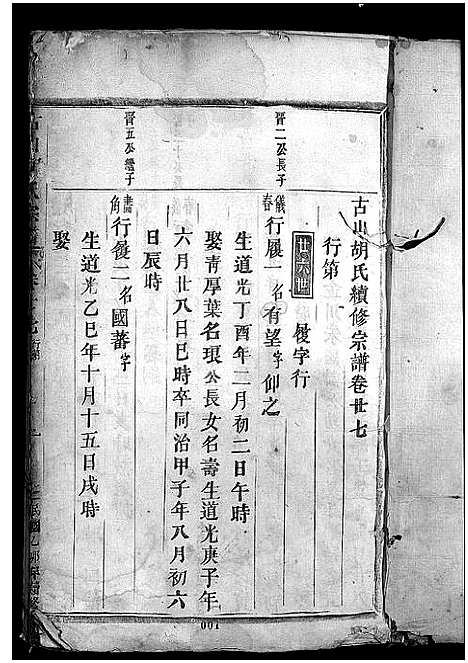 古山胡氏續修宗譜卷廿七
行第
廿六世
履字行
晉二公長子
儀春
行履一名有望字仰之
生道光丁酉年二月初二日午時
娶青厚葉名琅公長女名壽生道光庚子年
六月廿八日巳時卒同治甲子年八月初六
日辰時
晉五公繼子
行履二名國蕃字
生道光乙巳年十月十五日戌時
娶
001